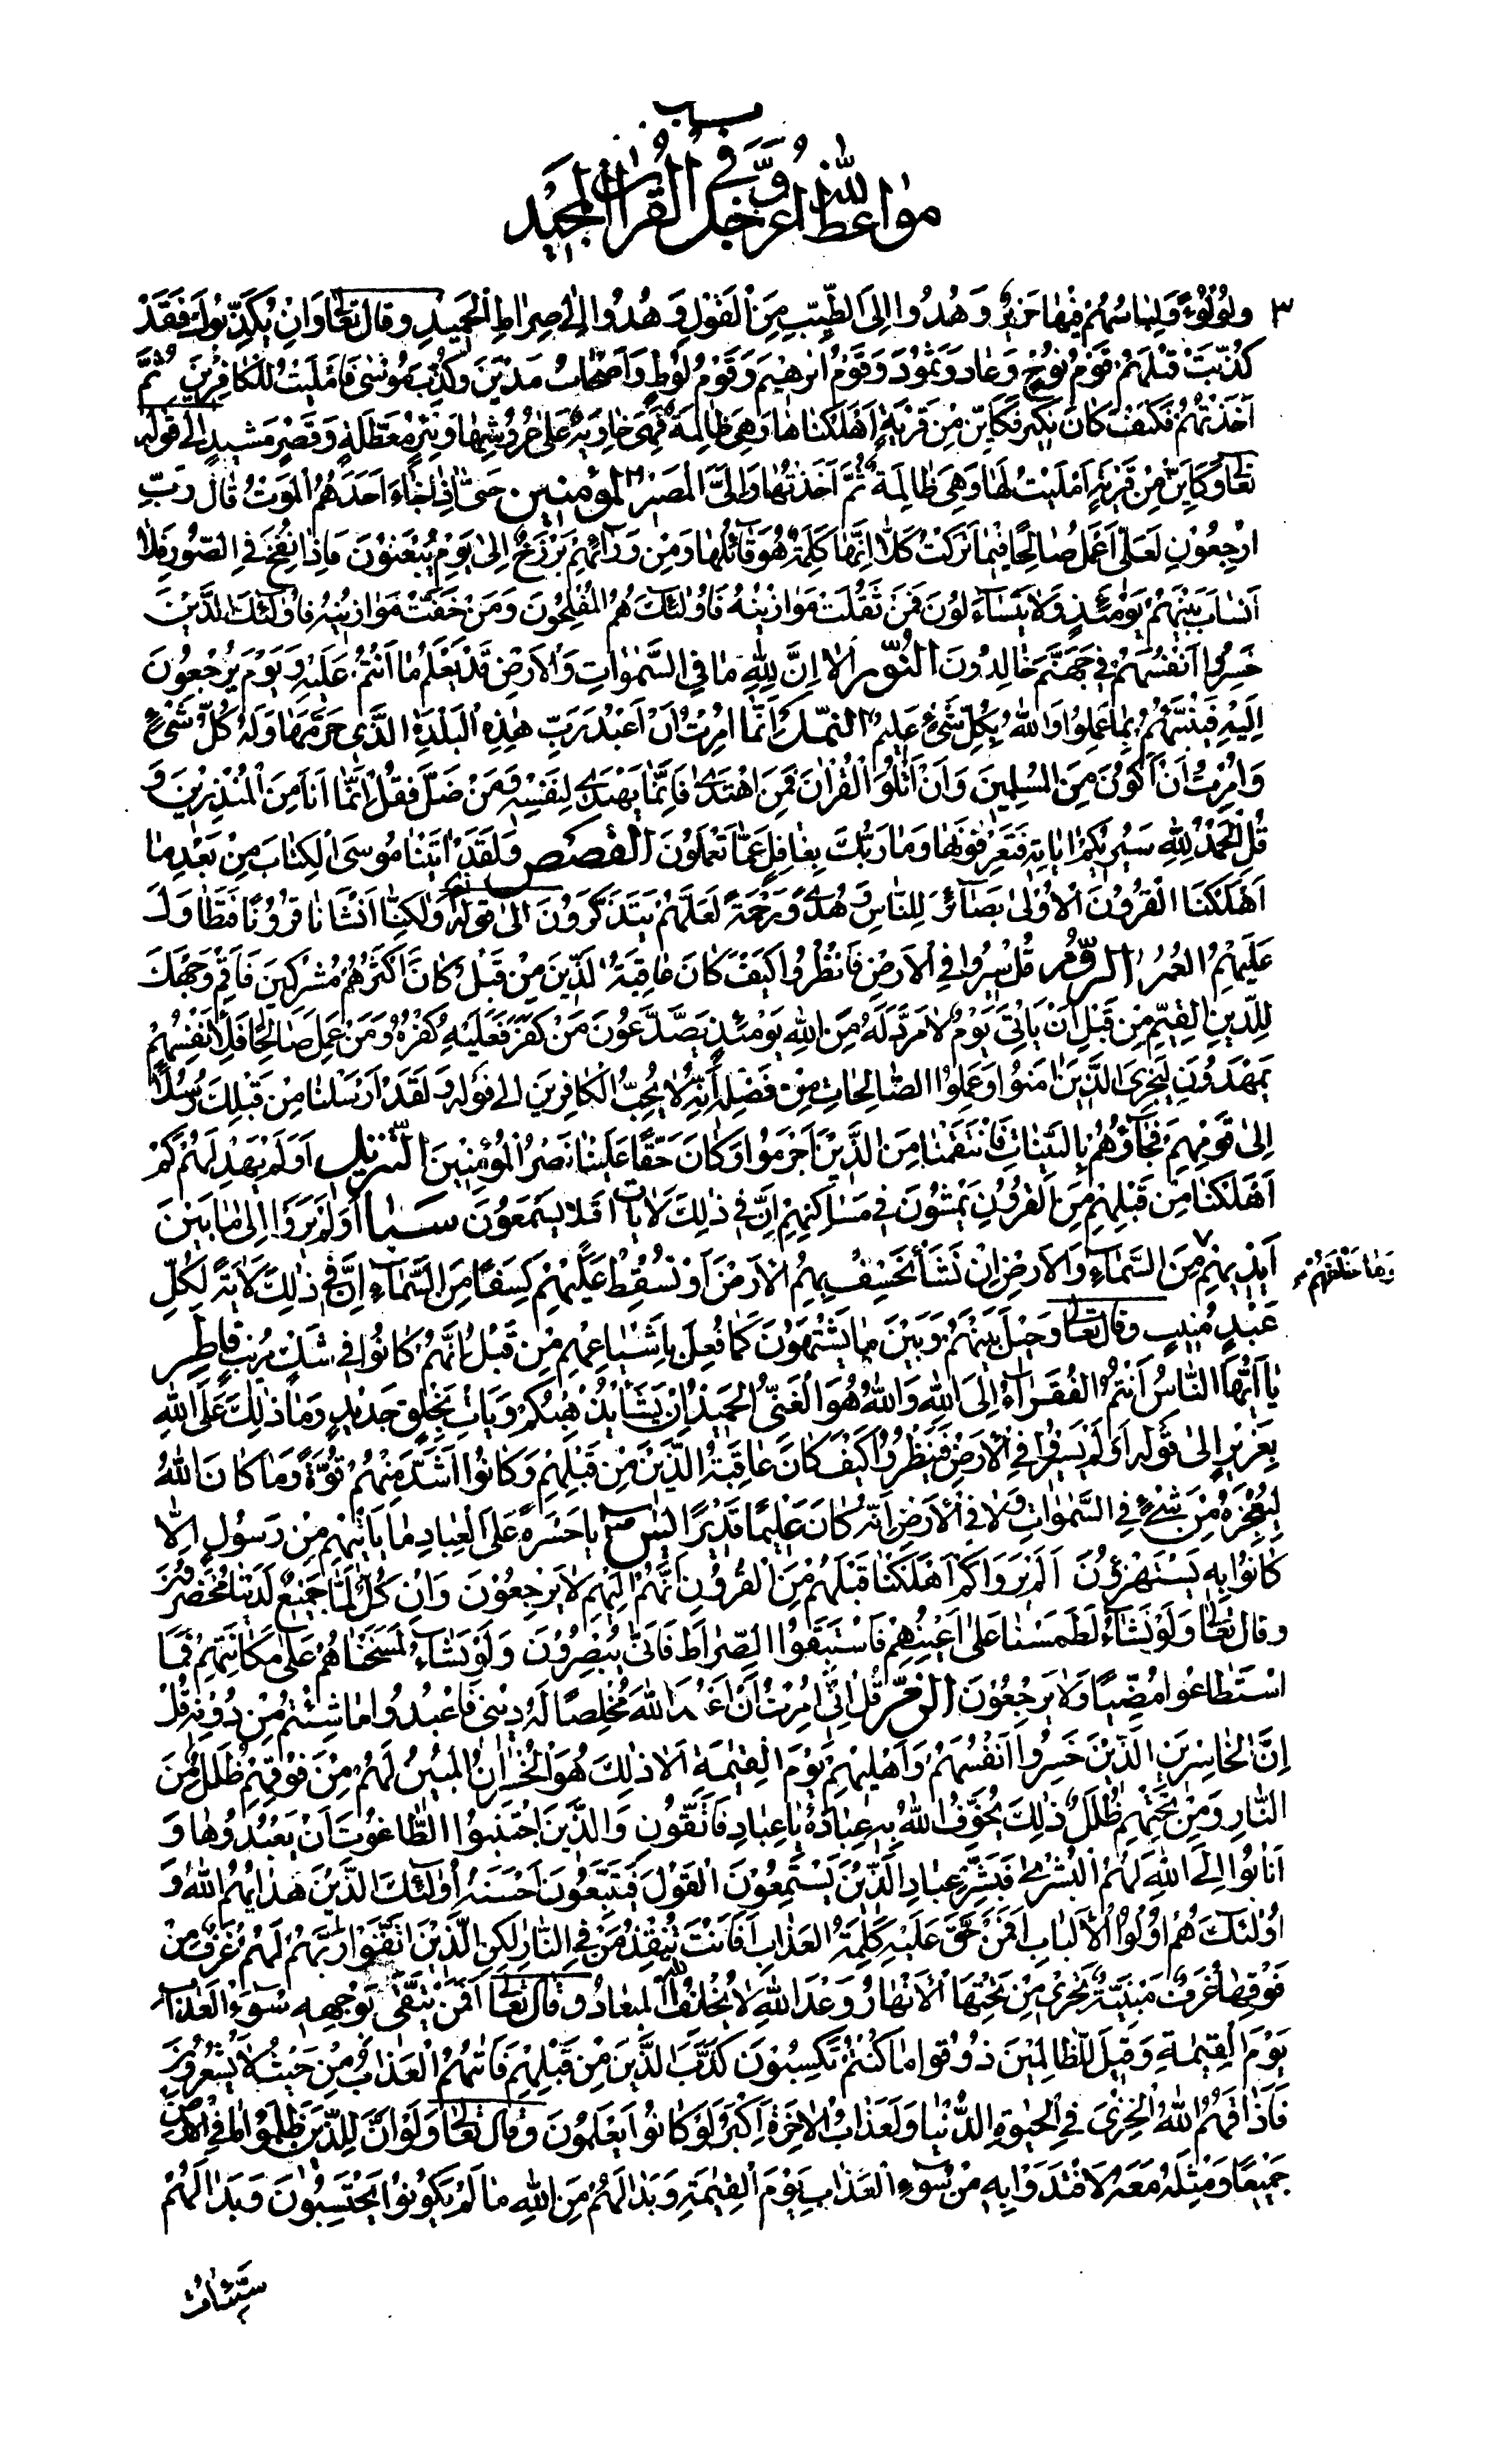 باب
مواعظ الله عزّ وجلّ في القرآن المجيد
٣
وَلُؤْلُؤًا وَلِبَاسُهُمْ فِيهَا حَرِيرٌ وَهُدُوا إِلَى الطَّيِّبِ مِنَ الْقَوْلِ وَهُدُوا إِلَى صِرَاطِ الْحَمِيدِ وقال تعالى وَإِنْ يُكَذِّبُوكَ فَقَدْ
كَذَّبَتْ قَبْلَهُمْ قَوْمُ نُوحٍ وَعَادٌ وَثَمُودُ وَقَوْمُ إِبْرٰهِيمَ وَقَوْمُ لُوطٍ وَأَصْحَابُ مَدْيَنَ وَكُذِّبَ مُوسَى فَأَمْلَيْتُ لِلْكَافِرِينَ ثُمَّ
أَخَذْتُهُمْ فَكَيْفَ كَانَ نَكِيرِ فَكَأَيِّنْ مِنْ قَرْيَةٍ أَهْلَكْنَاهَا وَهِيَ ظَالِمَةٌ فَهِيَ خَاوِيَةٌ عَلَى عُرُوشِهَا وَبِئْرٍ مُعَطَّلَةٍ وَقَصْرٍ مَشِيدٍ إلى قوله
تعالى وَكَأَيِّنْ مِنْ قَرْيَةٍ أَمْلَيْتُ لَهَا وَهِيَ ظَالِمَةٌ ثُمَّ أَخَذْتُهَا وَإِلَيَّ الْمَصِيرُ المؤمنين حَتَّى إِذَا جَاءَ أَحَدَهُمُ الْمَوْتُ قَالَ رَبِّ
ارْجِعُونِ لَعَلِّي أَعْمَلُ صَالِحًا فِيمَا تَرَكْتُ كَلَّا إِنَّهَا كَلِمَةٌ هُوَ قَائِلُهَا وَمِنْ وَرَائِهِمْ بَرْزَخٌ إِلَى يَوْمِ يُبْعَثُونَ فَإِذَا نُفِخَ فِي الصُّورِ فَلَا
أَنْسَابَ بَيْنَهُمْ يَوْمَئِذٍ وَلَا يَتَسَاءَلُونَ فَمَنْ ثَقُلَتْ مَوَازِينُهُ فَأُولٰئِكَ هُمُ الْمُفْلِحُونَ وَمَنْ خَفَّتْ مَوَازِينُهُ فَأُولٰئِكَ الَّذِينَ
خَسِرُوا أَنْفُسَهُمْ فِي جَهَنَّمَ خَالِدُونَ النّور أَلَا إِنَّ لِلّٰهِ مَا فِي السَّمٰوَاتِ وَالْأَرْضِ قَدْ يَعْلَمُ مَا أَنْتُمْ عَلَيْهِ وَيَوْمَ يُرْجَعُونَ
إِلَيْهِ فَيُنَبِّئُهُمْ بِمَا عَمِلُوا وَاللّٰهُ بِكُلِّ شَيْءٍ عَلِيمٌ النمل إِنَّمَا أُمِرْتُ أَنْ أَعْبُدَ رَبَّ هٰذِهِ الْبَلْدَةِ الَّذِي حَرَّمَهَا وَلَهُ كُلُّ شَيْءٍ
وَأُمِرْتُ أَنْ أَكُونَ مِنَ الْمُسْلِمِينَ وَأَنْ أَتْلُوَ الْقُرْآنَ فَمَنِ اهْتَدَى فَإِنَّمَا يَهْتَدِي لِنَفْسِهِ وَمَنْ ضَلَّ فَقُلْ إِنَّمَا أَنَا مِنَ الْمُنْذِرِينَ وَ
قُلِ الْحَمْدُ لِلّٰهِ سَيُرِيكُمْ آيَاتِهِ فَتَعْرِفُونَهَا وَمَا رَبُّكَ بِغَافِلٍ عَمَّا تَعْمَلُونَ القصص وَلَقَدْ آتَيْنَا مُوسَى الْكِتَابَ مِنْ بَعْدِ مَا
أَهْلَكْنَا الْقُرُونَ الْأُولَى بَصَائِرَ لِلنَّاسِ وَهُدًى وَرَحْمَةً لَعَلَّهُمْ يَتَذَكَّرُونَ إلى قوله وَلٰكِنَّا أَنْشَأْنَا قُرُونًا فَتَطَاوَلَ
عَلَيْهِمُ الْعُمُرُ الرّوم قُلْ سِيرُوا فِي الْأَرْضِ فَانْظُرُوا كَيْفَ كَانَ عَاقِبَةُ الَّذِينَ مِنْ قَبْلُ كَانَ أَكْثَرُهُمْ مُشْرِكِينَ فَأَقِمْ وَجْهَكَ
لِلدِّينِ الْقَيِّمِ مِنْ قَبْلِ أَنْ يَأْتِيَ يَوْمٌ لَا مَرَدَّ لَهُ مِنَ اللّٰهِ يَوْمَئِذٍ يَصَّدَّعُونَ مَنْ كَفَرَ فَعَلَيْهِ كُفْرُهُ وَمَنْ عَمِلَ صَالِحًا فَلِأَنْفُسِهِمْ
يَمْهَدُونَ لِيَجْزِيَ الَّذِينَ آمَنُوا وَعَمِلُوا الصَّالِحَاتِ مِنْ فَضْلِهِ إِنَّهُ لَا يُحِبُّ الْكَافِرِينَ إلى قوله وَلَقَدْ أَرْسَلْنَا مِنْ قَبْلِكَ رُسُلًا
إِلَى قَوْمِهِمْ فَجَاؤُهُمْ بِالْبَيِّنَاتِ فَانْتَقَمْنَا مِنَ الَّذِينَ أَجْرَمُوا وَكَانَ حَقًّا عَلَيْنَا نَصْرُ الْمُؤْمِنِينَ التنزيل أَوَلَمْ يَهْدِ لَهُمْ كَمْ
أَهْلَكْنَا مِنْ قَبْلِهِمْ مِنَ الْقُرُونِ يَمْشُونَ فِي مَسَاكِنِهِمْ إِنَّ فِي ذٰلِكَ لَآيَاتٍ أَفَلَا يَسْمَعُونَ سبأ أَوَلَمْ يَرَوْا إِلَى مَا بَيْنَ
أَيْدِيهِمْ مِنَ السَّمَاءِ وَالْأَرْضِ إِنْ نَشَأْ نَخْسِفْ بِهِمُ الْأَرْضَ أَوْ نُسْقِطْ عَلَيْهِمْ كِسَفًا مِنَ السَّمَاءِ إِنَّ فِي ذٰلِكَ لَآيَةً لِكُلِّ
وَمَا خَلْفَهُمْ
عَبْدٍ مُنِيبٍ وقال تعالى وَحِيلَ بَيْنَهُمْ وَبَيْنَ مَا يَشْتَهُونَ كَمَا فُعِلَ بِأَشْيَاعِهِمْ مِنْ قَبْلُ إِنَّهُمْ كَانُوا فِي شَكٍّ مُرِيبٍ فاطر
يَا أَيُّهَا النَّاسُ أَنْتُمُ الْفُقَرَاءُ إِلَى اللّٰهِ وَاللّٰهُ هُوَ الْغَنِيُّ الْحَمِيدُ إِنْ يَشَأْ يُذْهِبْكُمْ وَيَأْتِ بِخَلْقٍ جَدِيدٍ وَمَا ذٰلِكَ عَلَى اللّٰهِ
بِعَزِيزٍ إلى قوله أَوَلَمْ يَسِيرُوا فِي الْأَرْضِ فَيَنْظُرُوا كَيْفَ كَانَ عَاقِبَةُ الَّذِينَ مِنْ قَبْلِهِمْ وَكَانُوا أَشَدَّ مِنْهُمْ قُوَّةً وَمَا كَانَ اللّٰهُ
لِيُعْجِزَهُ مِنْ شَيْءٍ فِي السَّمٰوَاتِ وَلَا فِي الْأَرْضِ إِنَّهُ كَانَ عَلِيمًا قَدِيرًا يٰس يَا حَسْرَةً عَلَى الْعِبَادِ مَا يَأْتِيهِمْ مِنْ رَسُولٍ إِلَّا
كَانُوا بِهِ يَسْتَهْزِؤُنَ أَلَمْ يَرَوْا كَمْ أَهْلَكْنَا قَبْلَهُمْ مِنَ الْقُرُونِ أَنَّهُمْ إِلَيْهِمْ لَا يَرْجِعُونَ وَإِنْ كُلٌّ لَمَّا جَمِيعٌ لَدَيْنَا مُحْضَرُونَ
وقال تعالى وَلَوْ نَشَاءُ لَطَمَسْنَا عَلَى أَعْيُنِهِمْ فَاسْتَبَقُوا الصِّرَاطَ فَأَنَّى يُبْصِرُونَ وَلَوْ نَشَاءُ لَمَسَخْنَاهُمْ عَلَى مَكَانَتِهِمْ فَمَا
اسْتَطَاعُوا مُضِيًّا وَلَا يَرْجِعُونَ الزّمر قُلْ إِنِّي أُمِرْتُ أَنْ أَعْبُدَ اللّٰهَ مُخْلِصًا لَهُ دِينِي فَاعْبُدُوا مَا شِئْتُمْ مِنْ دُونِهِ قُلْ
إِنَّ الْخَاسِرِينَ الَّذِينَ خَسِرُوا أَنْفُسَهُمْ وَأَهْلِيهِمْ يَوْمَ الْقِيٰمَةِ أَلَا ذٰلِكَ هُوَ الْخُسْرَانُ الْمُبِينُ لَهُمْ مِنْ فَوْقِهِمْ ظُلَلٌ مِنَ
النَّارِ وَمِنْ تَحْتِهِمْ ظُلَلٌ ذٰلِكَ يُخَوِّفُ اللّٰهُ بِهِ عِبَادَهُ يَا عِبَادِ فَاتَّقُونِ وَالَّذِينَ اجْتَنَبُوا الطَّاغُوتَ أَنْ يَعْبُدُوهَا وَ
أَنَابُوا إِلَى اللّٰهِ لَهُمُ الْبُشْرَى فَبَشِّرْ عِبَادِ الَّذِينَ يَسْتَمِعُونَ الْقَوْلَ فَيَتَّبِعُونَ أَحْسَنَهُ أُولٰئِكَ الَّذِينَ هَدَاهُمُ اللّٰهُ وَ
أُولٰئِكَ هُمْ أُولُوا الْأَلْبَابِ أَفَمَنْ حَقَّ عَلَيْهِ كَلِمَةُ الْعَذَابِ أَفَأَنْتَ تُنْقِذُ مَنْ فِي النَّارِ لٰكِنِ الَّذِينَ اتَّقَوْا رَبَّهُمْ لَهُمْ غُرَفٌ مِنْ
فَوْقِهَا غُرَفٌ مَبْنِيَّةٌ تَجْرِي مِنْ تَحْتِهَا الْأَنْهَارُ وَعْدَ اللّٰهِ لَا يُخْلِفُ اللّٰهُ الْمِيعَادَ وقال تعالى أَفَمَنْ يَتَّقِي بِوَجْهِهِ سُوءَ الْعَذَابِ
يَوْمَ الْقِيٰمَةِ وَقِيلَ لِلظَّالِمِينَ ذُوقُوا مَا كُنْتُمْ تَكْسِبُونَ كَذَّبَ الَّذِينَ مِنْ قَبْلِهِمْ فَأَتٰهُمُ الْعَذَابُ مِنْ حَيْثُ لَا يَشْعُرُونَ
فَأَذَاقَهُمُ اللّٰهُ الْخِزْيَ فِي الْحَيٰوةِ الدُّنْيَا وَلَعَذَابُ الْآخِرَةِ أَكْبَرُ لَوْ كَانُوا يَعْلَمُونَ وقال تعالى وَلَوْ أَنَّ لِلَّذِينَ ظَلَمُوا مَا فِي الْأَرْضِ
جَمِيعًا وَمِثْلَهُ مَعَهُ لَافْتَدَوْا بِهِ مِنْ سُوءِ الْعَذَابِ يَوْمَ الْقِيٰمَةِ وَبَدَا لَهُمْ مِنَ اللّٰهِ مَا لَمْ يَكُونُوا يَحْتَسِبُونَ وَبَدَا لَهُمْ
سَيِّئَاتُ